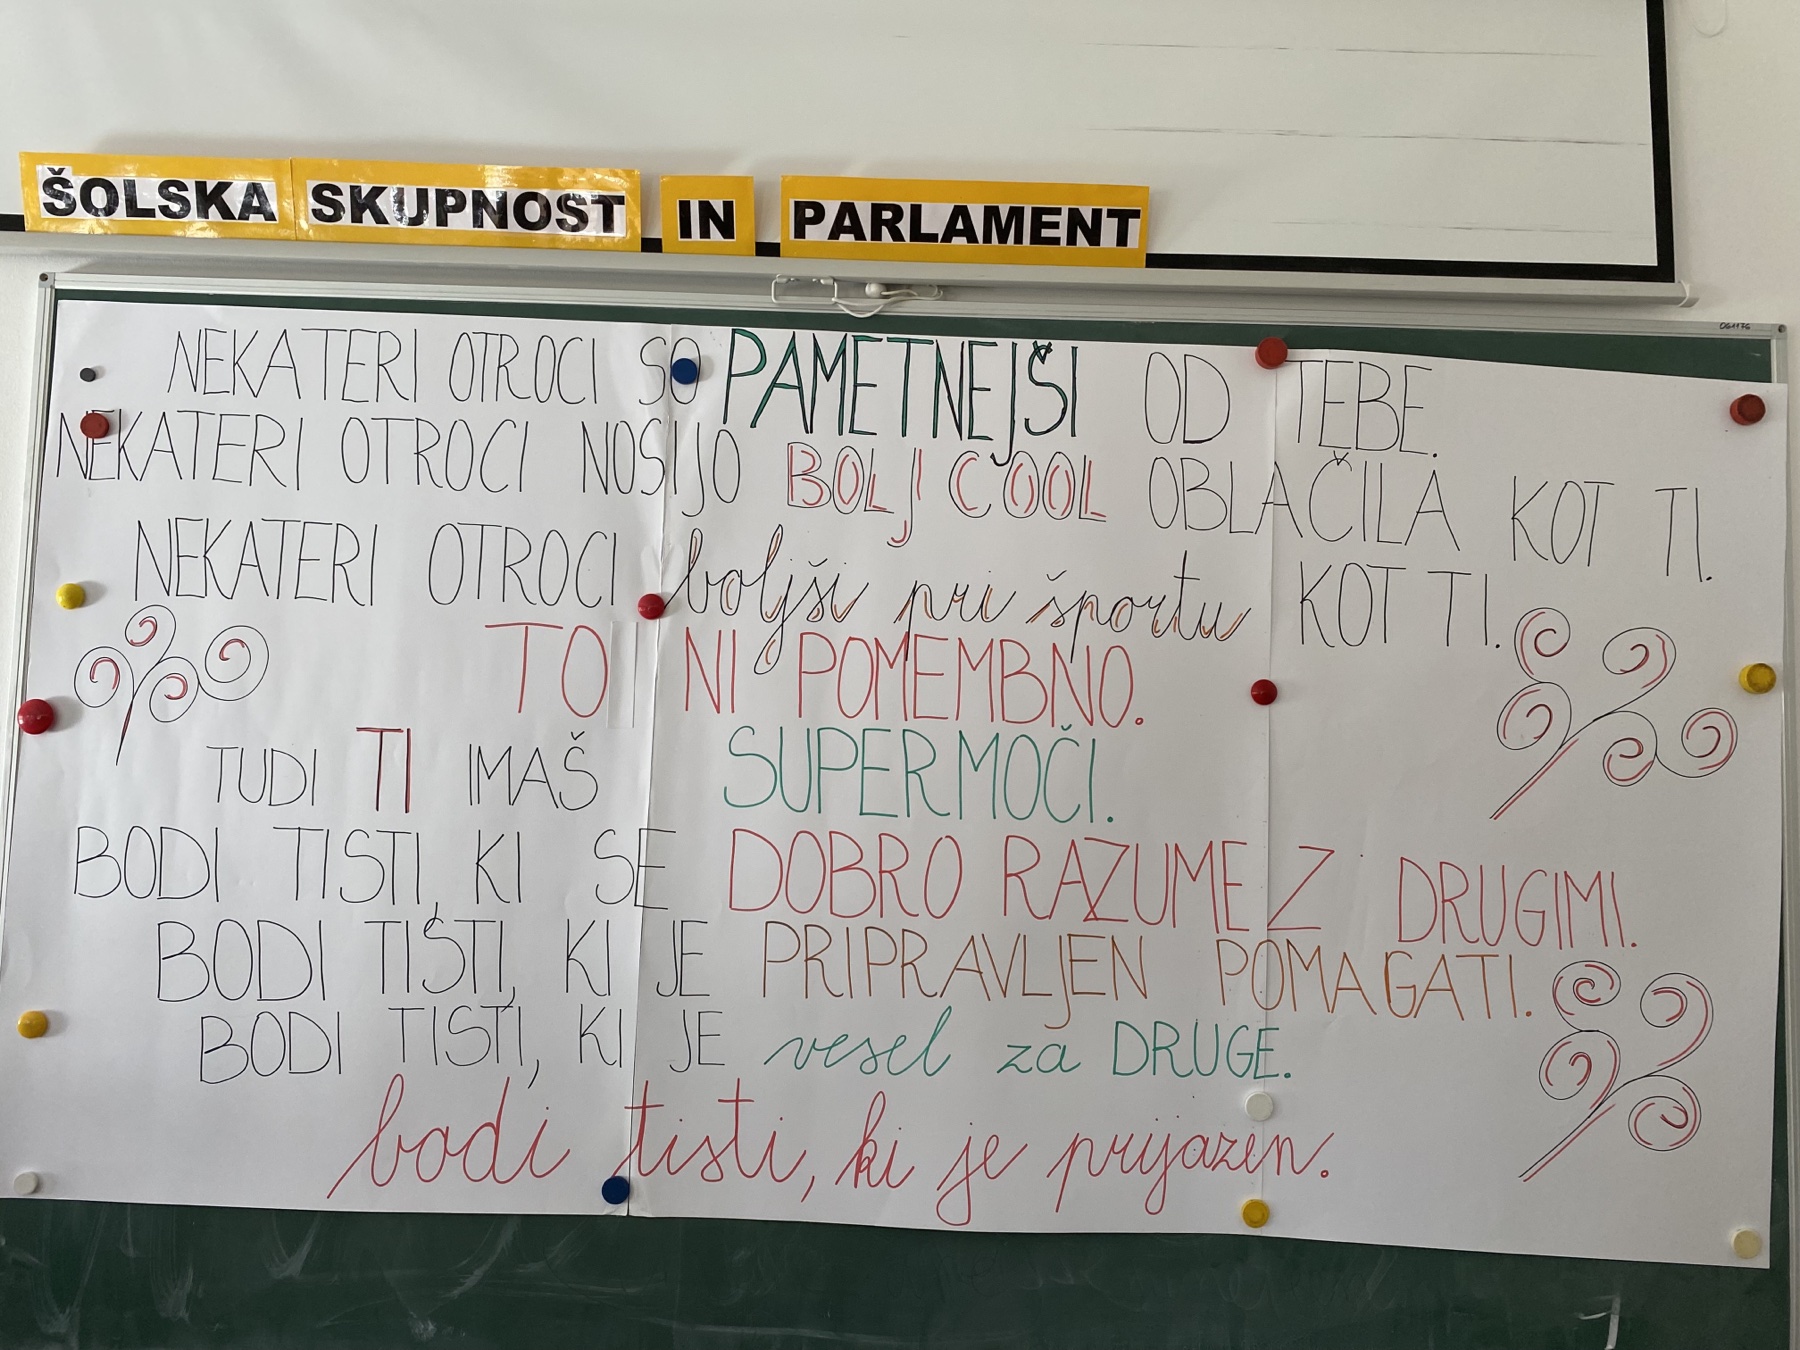 ŠOLSKA SKUPNOST IN PARLAMENT
NEKATERI OTROCI SO PAMETNEJŠI OD TEBE.
NEKATERI OTROCI NOSIJO BOLJ COOL OBLAČILA KOT TI.
NEKATERI OTROCI boljši pri športu KOT TI.
TO NI POMEMBNO.
TUDI TI IMAŠ SUPERMOČI.
BODI TISTI, KI SE DOBRO RAZUME Z DRUGIMI.
BODI TISTI, KI JE PRIPRAVLJEN POMAGATI.
BODI TISTI, KI JE vesel za DRUGE.
bodi tisti, ki je prijazen.